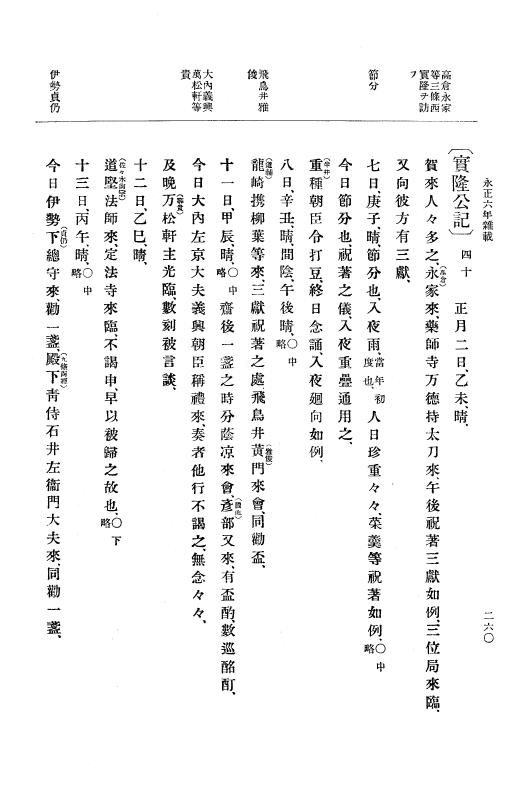 永正六年雜載
二六〇
高倉永家
等三條西
實隆ヲ訪
フ
節分
飛鳥井雅
俊
大內義興
萬松軒等
貴
伊勢貞仍
〔實隆公記〕四十 正月二日、乙未、晴、
賀來人々多之、永家來、藥師寺万德持太刀來、午後祝著三獻如例、三位局來臨、
又向彼方有三獻、
七日、庚子、晴、節分也、入夜雨、當年初度也、人日珍重々々、菜羹等祝著如例、〇中略
今日節分也、祝著之儀、入夜重疊通用之、
重種朝臣令打豆、終日念誦、入夜廻向如例、
八日、辛丑、晴、間陰、午後晴、〇中略
龍崎携柳葉等來、三獻祝著之處、飛鳥井黃門來會、同勸盃、
十一日、甲辰、晴、〇中略 齋後一盞之時分蔭凉來會、彥部又來、有盃酌、數巡酩酊、
今日大內左京大夫義興朝臣稱禮來、奏者他行不謁之、無念々々、
及晚万松軒主光臨、數刻被言談、
十二日、乙巳、晴、
道堅法師來、定法寺來臨、不謁申、早以被歸之故也、〇下略
十三日、丙午、晴、〇中略
今日伊勢下總守來、勸一盞、殿下靑侍石井左衞門大夫來、同勸一盞、